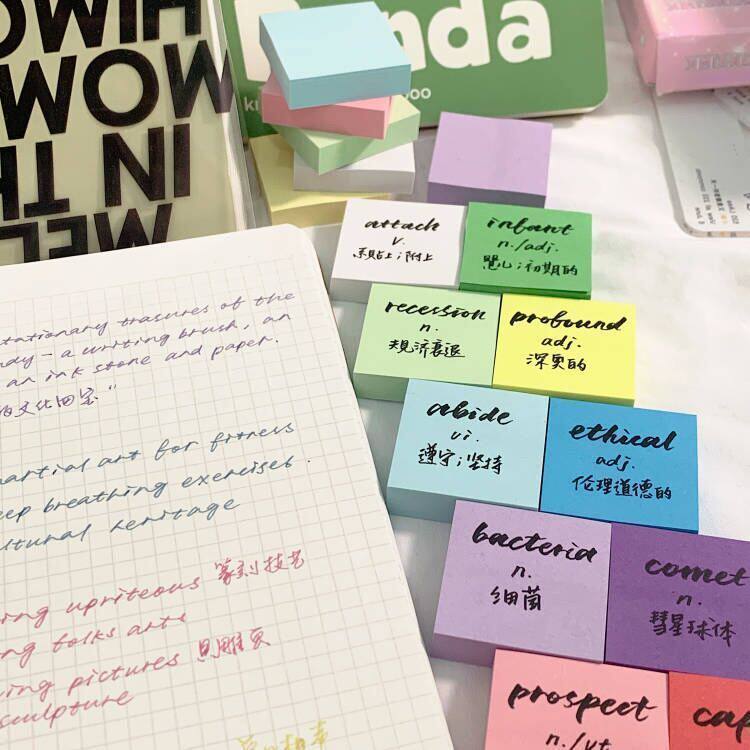 HIMO
WOW
IN TH
MEL
nda
attach
v.
系贴上;附上
infant
n./adj.
婴儿;初期的
recession
n.
经济衰退
profound
adj.
深奥的
abide
vi.
遵守;坚持
ethical
adj.
伦理道德的
bacteria
n.
细菌
comet
n.
彗星球体
prospect
n./vt
cap
tationary trasures of the
dy - a writing brush, an
an ink stone and paper.
的文化四宝"
martial art for fitness
eep breathing exercises.
ltural heritage
ring upriteous 篆刻技艺
ng folks arts
ing pictures
sculpture